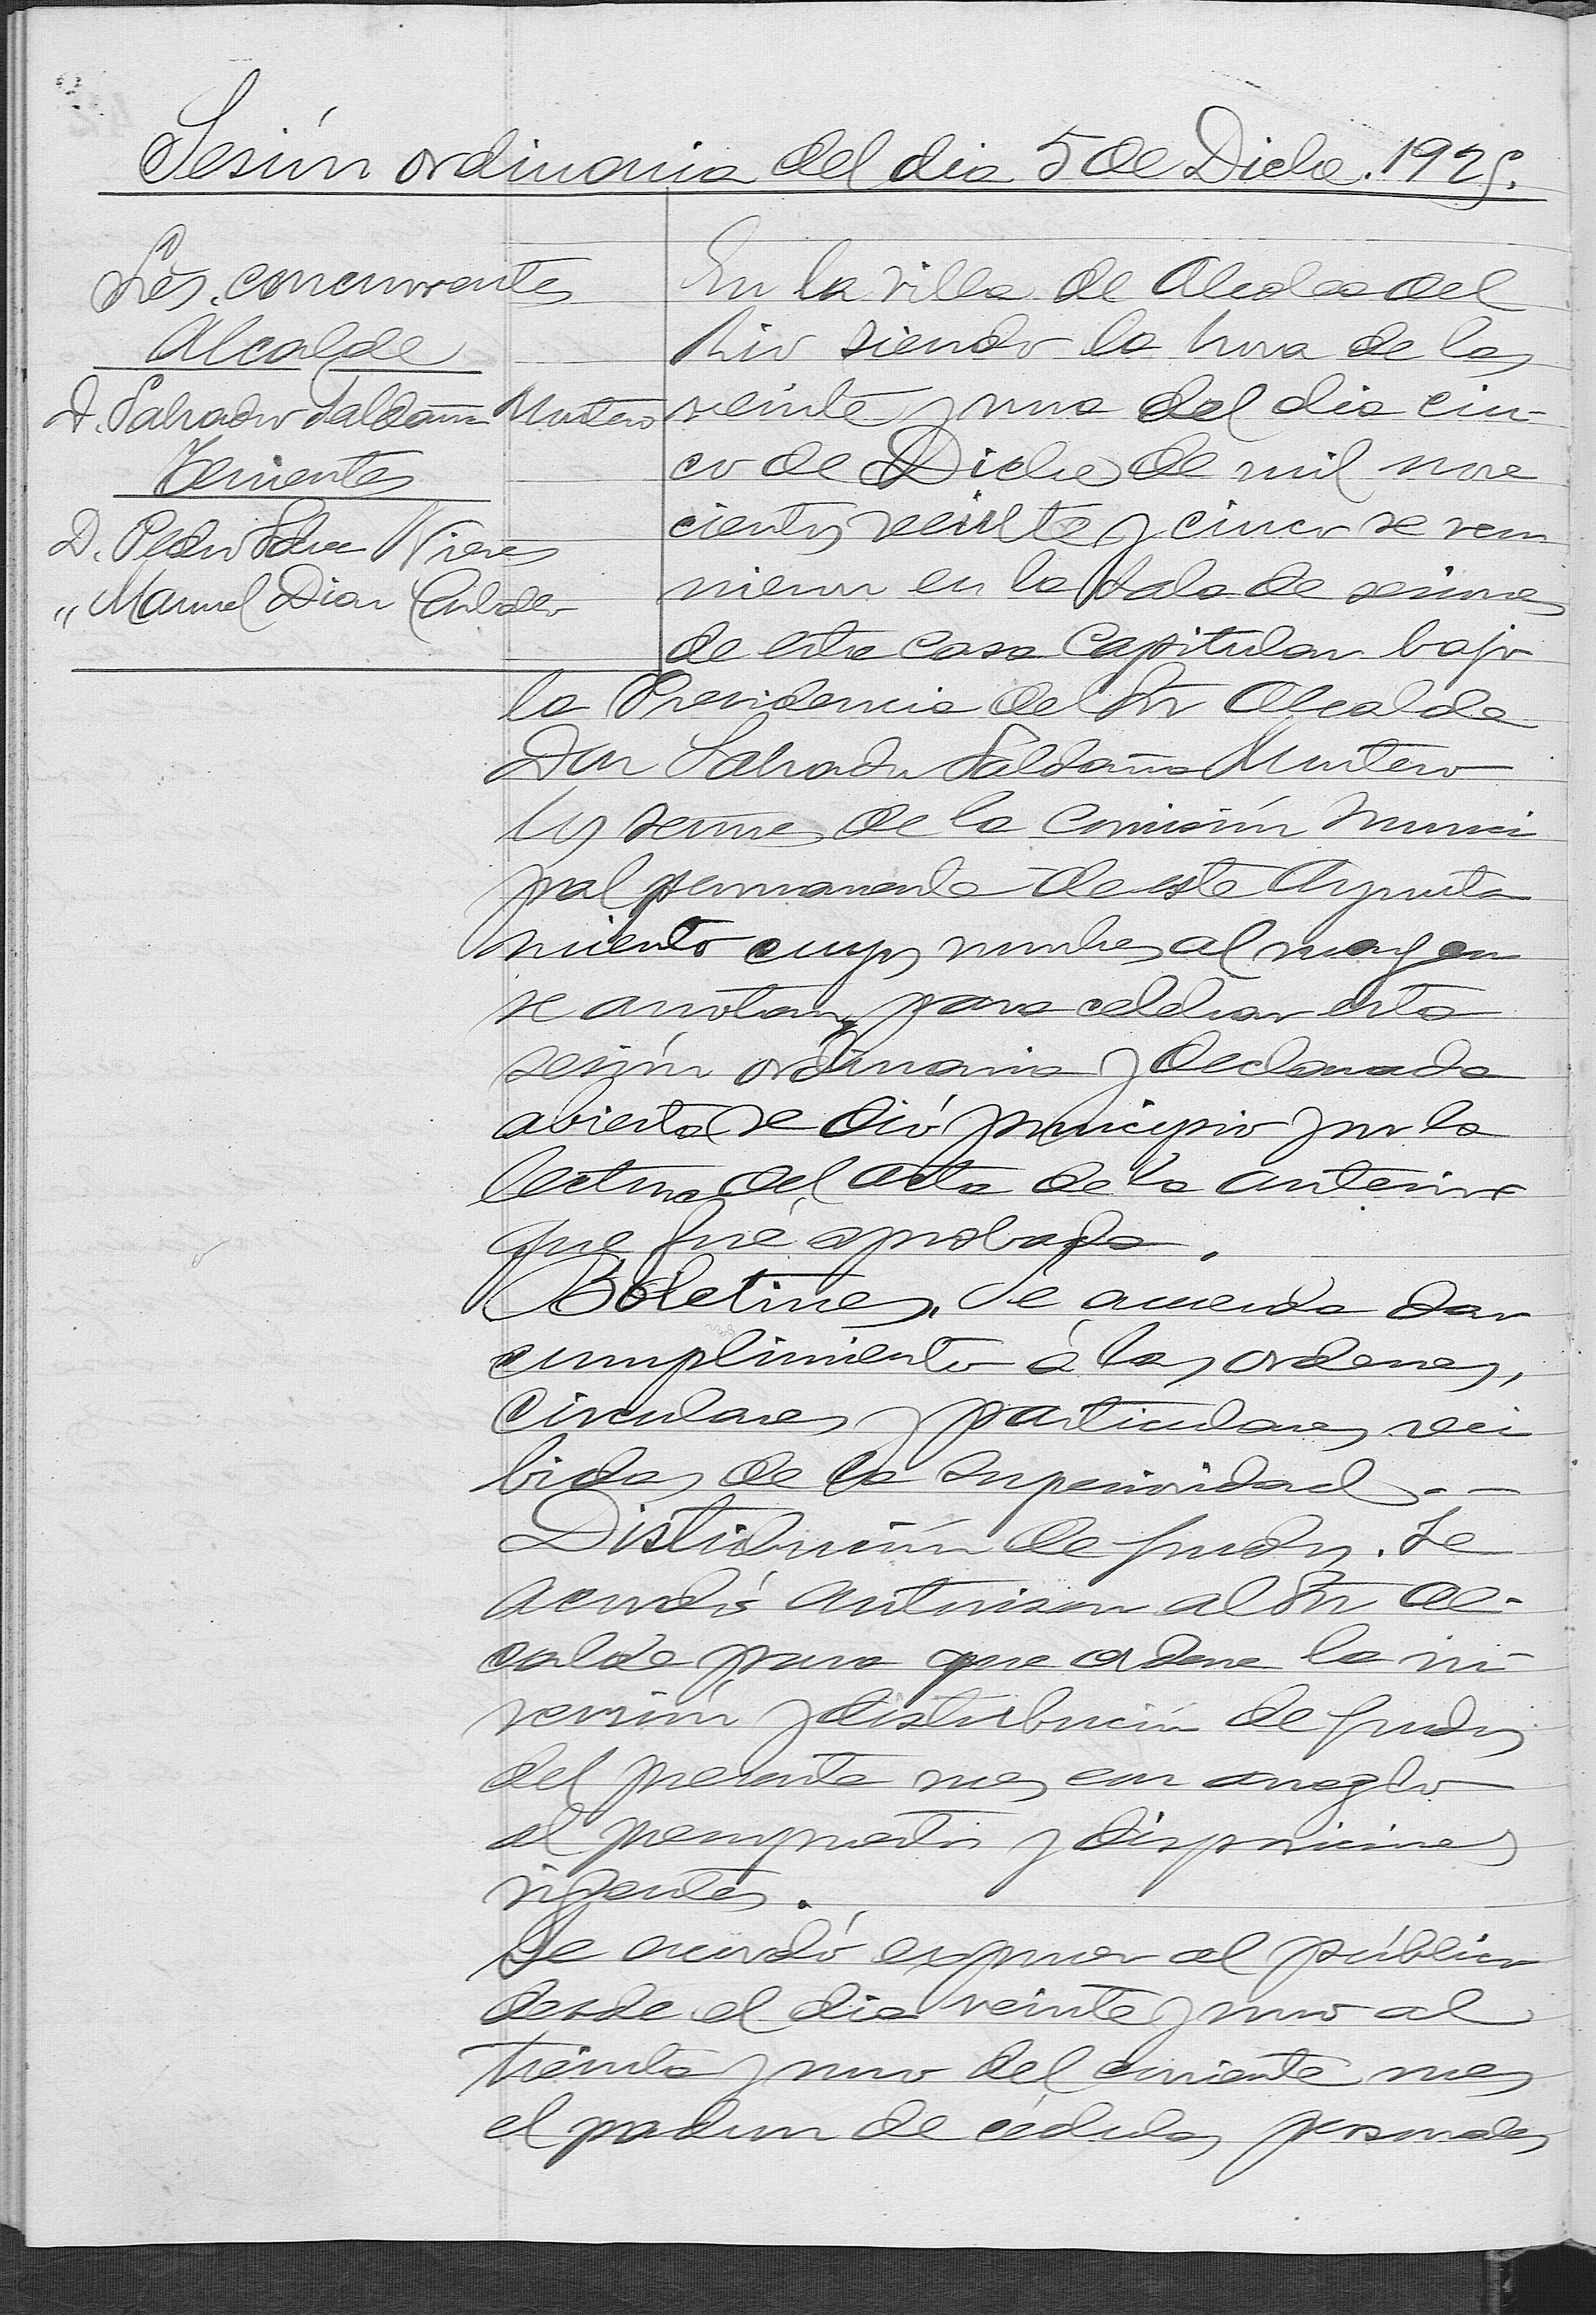 Sesión ordinaria del dia 5 de Dicbe. 1925.
Sres. concurrentes
Alcalde
D. Salvador Saldaña Montero
Tenientes
D. Pedro Nieves
" Manuel Diaz
En la villa de Alcolea del
Rio siendo la hora de las
veinte y una del dia cin-
co de Dicbe de mil nove
cientos veinte y cinco se reu
nieron en la Sala de sesiones
de esta Casa Capitular bajo
la Presidencia del Sr Alcalde
Don Salvador Saldaña Montero
los señores de la Comisión Munici
pal permanente de este Ayunta
miento cuyos nombres al margen
se anotan, para celebrar esta
sesión ordinaria y declarada
abierta se dió principio por la
lectura del acta de la anterior
que fué aprobada.
Boletines. Se acuerda dar
cumplimiento á las ordenes,
circulares y particulares reci
bidas de la superioridad. -
Distribución de fondos. Se
acordó autorisar al Sr Al-
calde para que ordene la in
versión y distribución de fondos
del presente mes con arreglo
al presupuesto y disposiciones
vigentes.
Se acordó exponer al público
desde el dia veinte y uno al
treinta y uno del corriente mes
el padron de cédulas personales